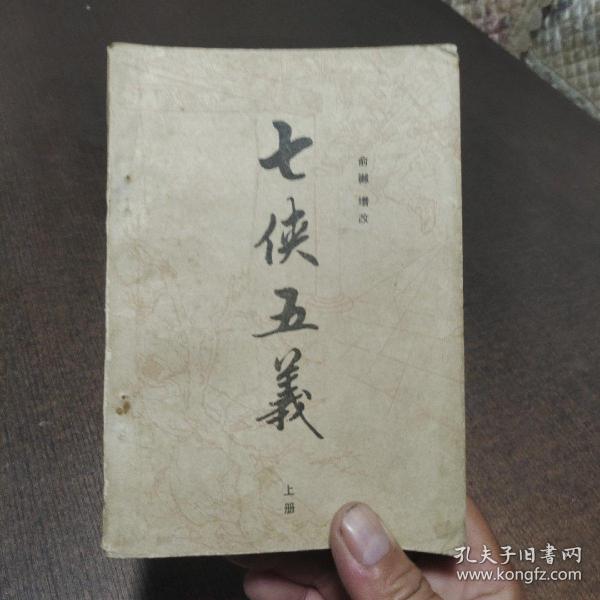 七侠五義
俞樾 增改
上册
孔夫子旧书网
www.kongfz.com